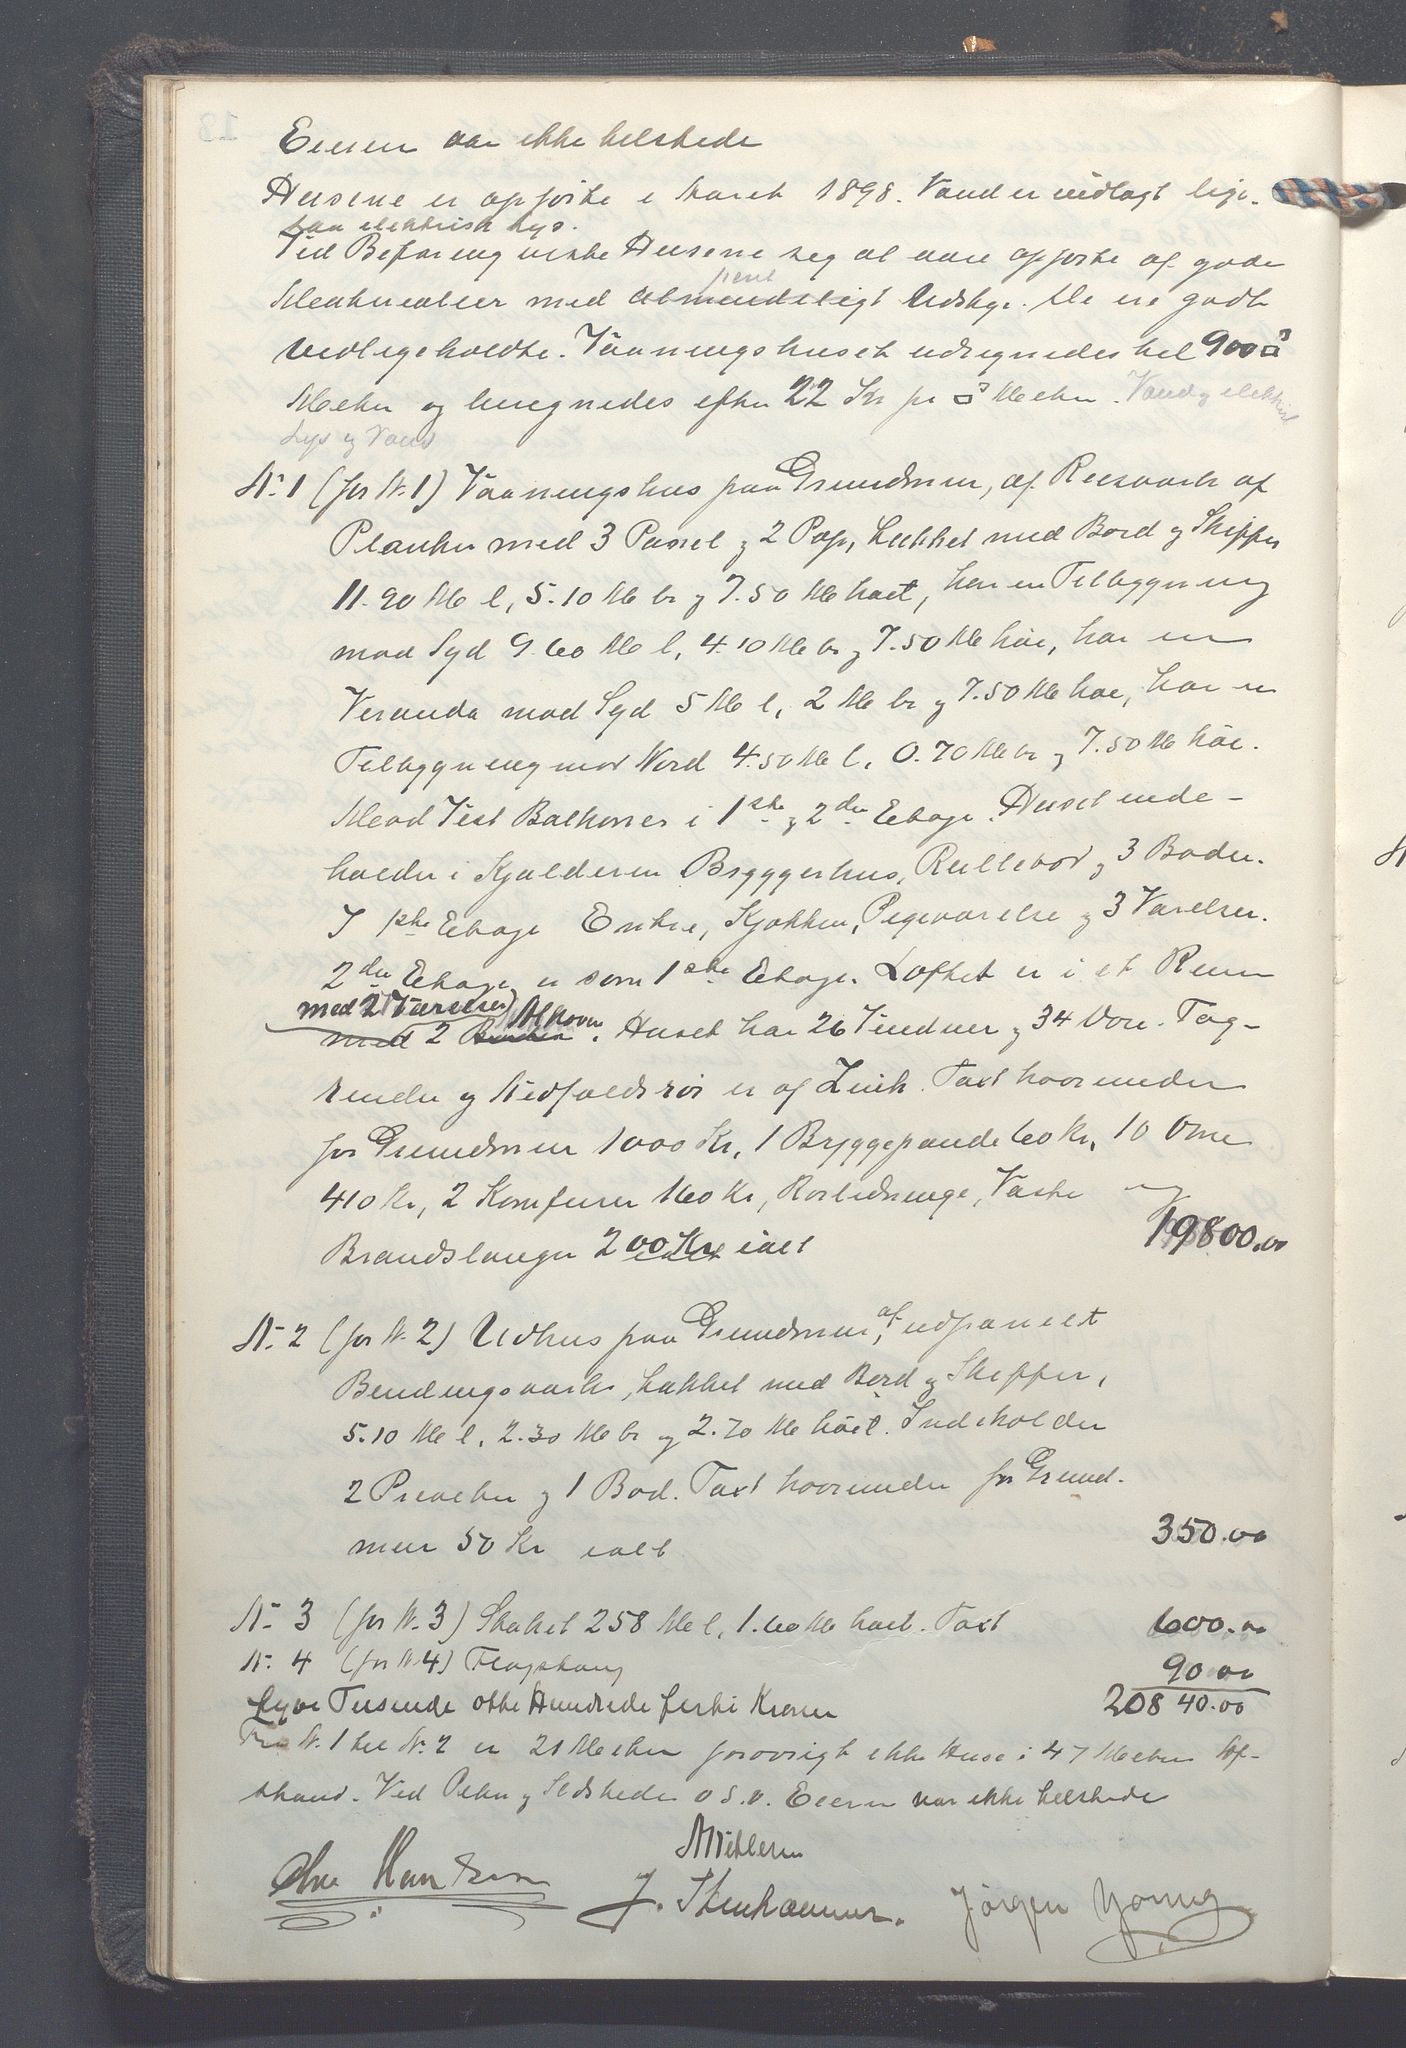 Eieren var ikke tilstede
Husene er opførte i Aaret 1898. Vand er indlagt lige-
saa elektrisk Lys.
Ved Befaring viste Husene seg at være opførte af gode
Materialier med pent Udstyr. De ere godt
vedligeholdte. Vaaningshuset udregnedes til 900 □³
Meter og beregnedes efter 22 Kr pr □³ Meter. Vand og elektrisk
Lys og Vand
N: 1 (før N. 1) Vaaningshus paa Grundmur, af Reisverk af
Planker med 3 Panel og 2 Pap, tækket med Bord og Skiffer
11.90 M l, 5.10 M br og 7.50 M høit, har en Tilbygning
mod Syd 9.60 M l, 4.10 M br og 7.50 M høi, har en
Veranda mod Syd 5 M l, 2 M br og 7.50 M høi, har en
Tilbygning mod Nord 4.50 M l, 0.70 M br og 7.50 M høi.
Mod Vest Balkoner i 1ste og 2den Etage. Huset inde-
holder i Kjælderen Bryggerhus, Rullebod og 3 Boder.
I 1ste Etage Entre, Kjøkken, Pigeværelse og 3 Værelser.
2den Etage er som 1ste Etage. Loftet er i et Rum
med 2 Værelser
med 2 Alkover. Huset har 26 Vinduer og 34 Døre. Tag-
render og Nedfaldsrør er af Zink. Taxt hvorunder
for Grundmur 1000 Kr, 1 Bryggepande 60 Kr, 10 Ovne
410 Kr, 2 Komfurer 160 Kr, Rørledninge, Vaske og
Brandslanger 200 Kr ialt 19800.00
N: 2 (før N. 2) Udhus paa Grundmur, af udpanelt
Bindingsverk, tækket med Bord og Skiffer,
5.10 M l, 2.30 M br og 2.70 M høit. Indeholder
2 Priveter og 1 Bod. Taxt hvorunder for Grund-
mur 50 Kr ialt 350.00
N: 3 (før N. 3) Stakit 258 M l, 1.60 M høit. Taxt 600.00
N: 4 (før N. 4) Flagstang 90.00
Tyve Tusende otte Hundrede førti Kroner 20840.00
Fra N. 1 til N: 2 er 21 Meter forøvrigt ikke Huse i 47 Meters Af-
stand. Ved Peber og Ildsteder o.s.v. Eieren var ikke tilstede
J. Stenhammer. Jørgen Young